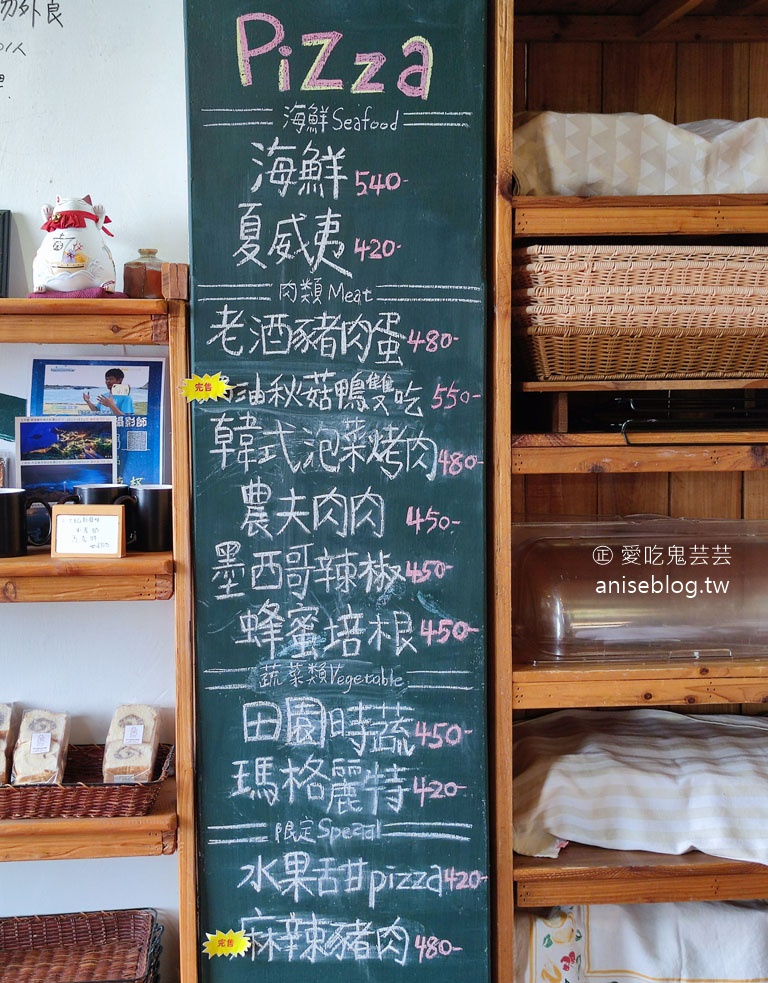 Pizza
海鮮 Seafood
海鮮 540-
夏威夷 420-
肉類 Meat
老酒豬肉蛋 480-
完售
油秋菇鴨雙吃 550-
韓式泡菜烤肉 480-
農夫肉肉 450-
墨西哥辣椒 450-
蜂蜜培根 450-
蔬菜類 Vegetable
田園時蔬 450-
瑪格麗特 420-
限定 Special
水果舌甘pizza 420-
完售
麻辣豬肉 480-
正 愛吃鬼芸芸
aniseblog.tw